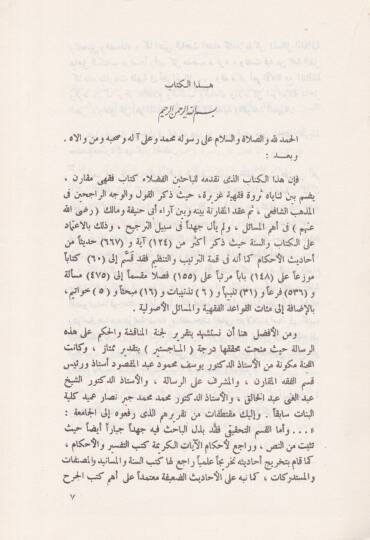 هذا الكتاب
بسم الله الرحمن الرحيم
الحمد لله والصلاة والسلام على رسوله محمد وعلى آله وصحبه ومن والاه .
وبعد :
فإن هذا الكتاب الذى نقدمه للباحثين الفضلاء كتاب فقهى مقارن ،
يضم بين ثناياه ثروة فقهية غزيرة ، حيث ذكر القول والوجه الراجحين فى
المذهب الشافعى ، ثم عقد المقارنة بينه وبين آراء أبى حنيفة ومالك ( رضى الله
عنهم ) فى أهم المسائل ، ولم يأل جهداً فى سبيل الترجيح ، وذلك بالاعتماد
على الكتاب والسنة حيث ذكر أكثر من (١٢٤) آية و (٦٦٧) حديثاً من
أحاديث الأحكام كما أنه فى قمة الترتيب والتنظيم فقد قسم إلى (٦٠) كتاباً
موزعاً على (١٤٨) باباً مرتباً على (١٥٥) فصلاً مقسماً إلى (٤٧٥) مسألة
و (٥٣٦) فرعاً و (٣١) تنبيهاً و ( ٦ ) تذنيبات و (١٦) مبحثاً و ( ٥ ) خواتيم ،
بالإضافة إلى مئات القواعد الفقهية والمسائل الأصولية .
ومن الأفضل هنا أن نستشهد بتقرير لجنة المناقشة والحكم على هذه
الرسالة حيث منحت محققها درجة ( الماجستير ) بتقدير ممتاز ، وكانت
اللجنة مكونة من الأستاذ الدكتور يوسف محمود عبد المقصود أستاذ ورئيس
قسم الفقه المقارن ، والمشرف على الرسالة ، والأستاذ الدكتور الشيخ
عبد الغنى عبد الخالق ، والأستاذ الدكتور محمد محمد جبر نصار عميد كلية
البنات سابقاً . وإليك مقتطفات من تقريرهم الذى رفعوه إلى الجامعة :
« ... وأما القسم التحقيقى فقد بذل الباحث فيه جهداً جباراً أيضاً حيث
تثبت من النص ، وراجع لأحكام الآيات الكريمة كتب التفسير والأحكام ،
كما قام بتخريج أحاديثه تخريجاً علمياً راجع لها كتب السنة والمسانيد والمصنفات
والمستدركات ، كما نبه على الأحاديث الضعيفة معتمداً على أهم كتب الجرح
٧